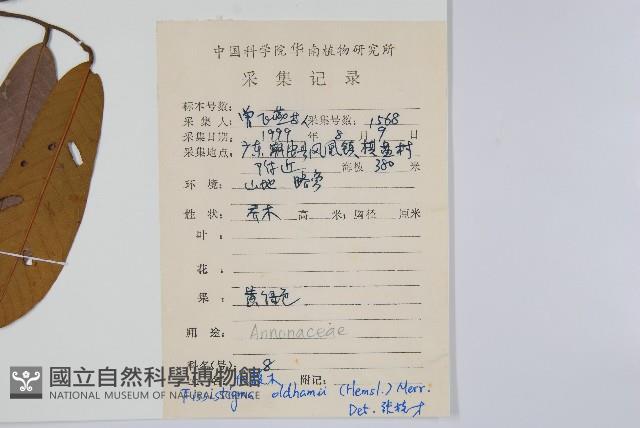 中国科学院华南植物研究所
采集记录
标本号数:
采集人: 曾飞燕等人 采集号数: 1568
采集日期: 1999 年 8 月 9 日
采集地点: 广东 凤凰镇 村
附近 海拔 380 米
环境: 山地 路旁
性状: 乔木 高 米; 胸径 厘米
叶:
花:
果: 黄绿色
用途: Annonaceae
科名(号): 8
附记:
Fissistigma oldhamii (Hemsl.) Merr.
Det.
國立自然科學博物館
NATIONAL MUSEUM OF NATURAL SCIENCE